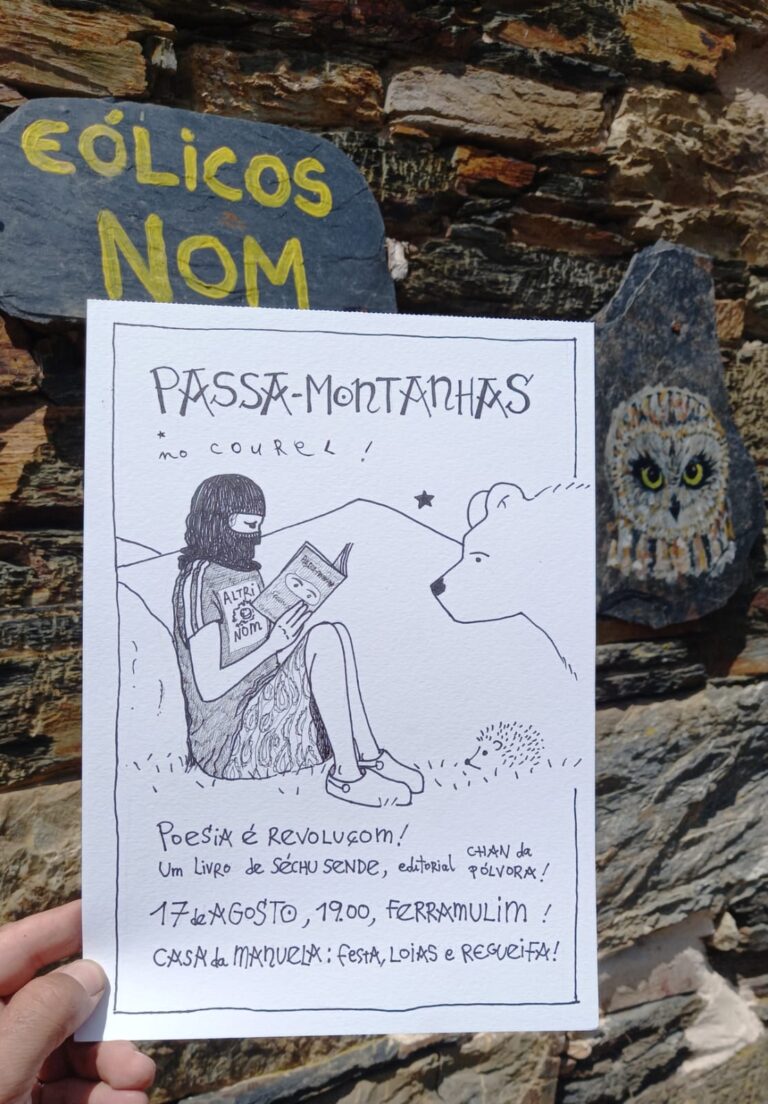 EÓLICOS
NOM
PASSA-MONTANHAS
no COUREL!
ALTRI
NOM
POESIA é REVOLUÇOM!
UM LIVRO de SÉCHU SENDE, editorial CHAN da PÓLVORA!
17 de AGOSTO, 19.00, FERRAMULIM!
CASA da MANUELA: festa, LOIAS e REGUEIFA!